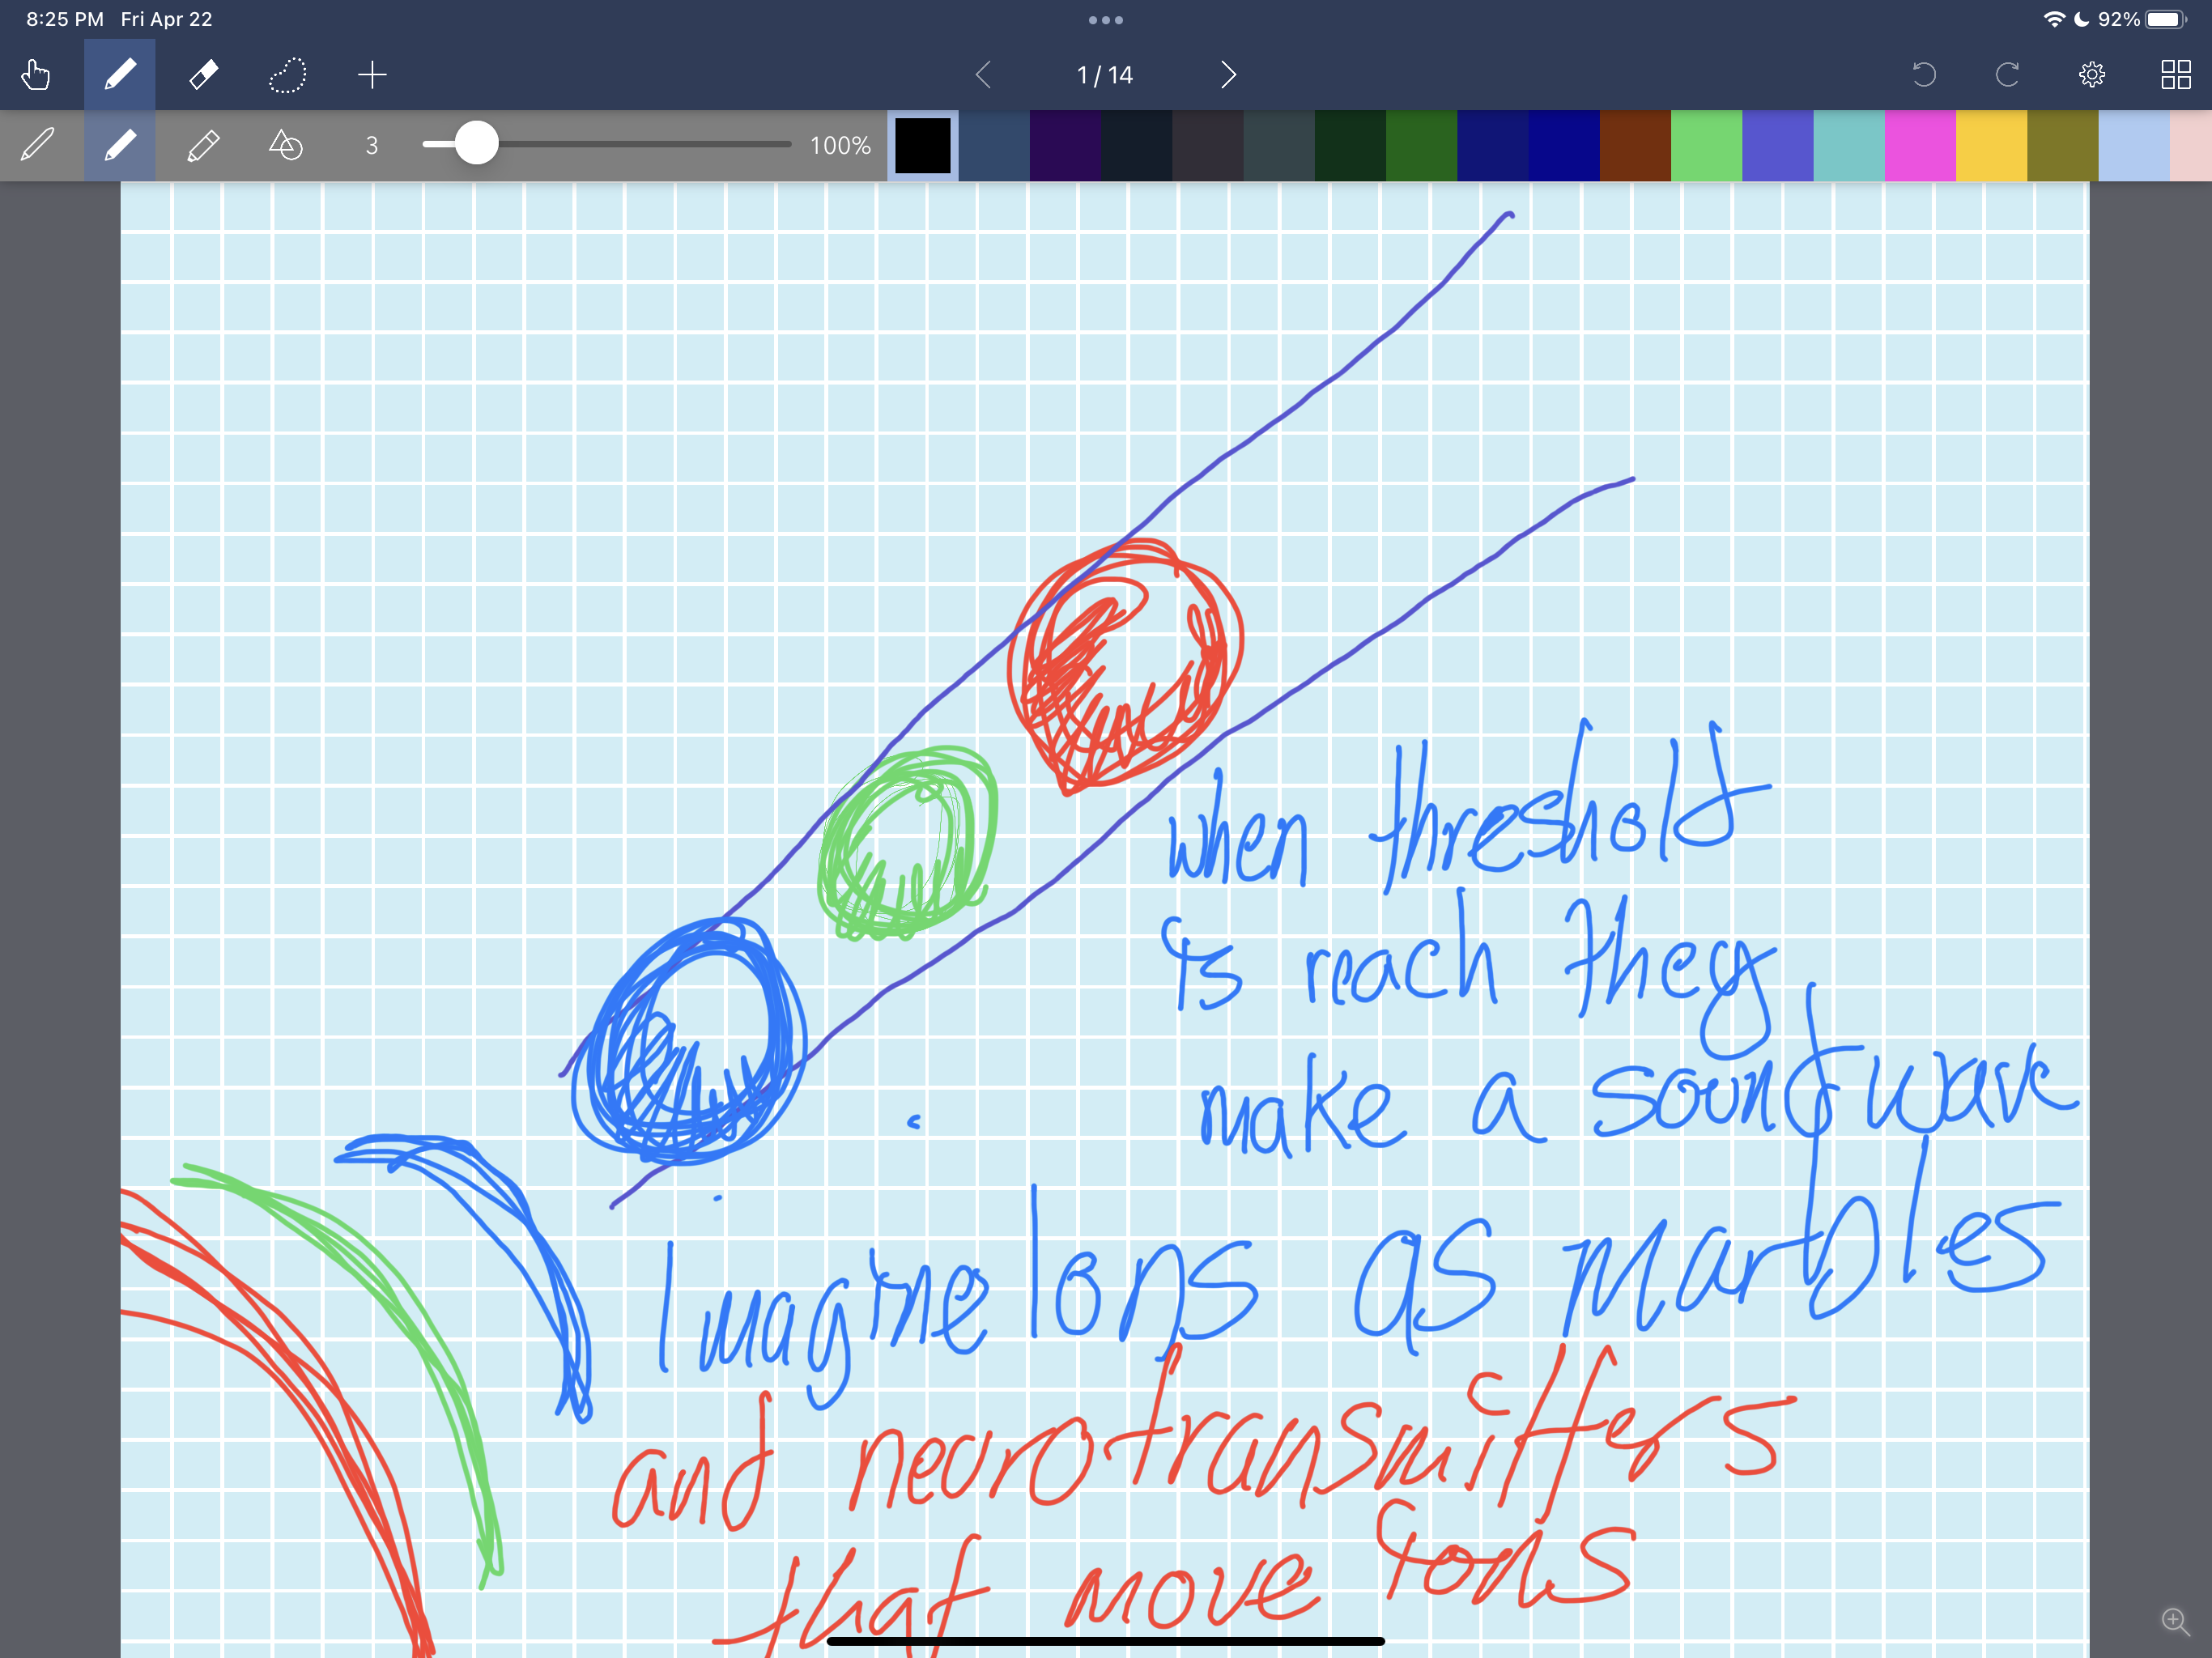 8:25 PM Fri Apr 22
92%
1 / 14
3
100%
when threshold
is reach they
make a soundwave
Imagine Ions as marbles
and neorotransmitters
that move ions